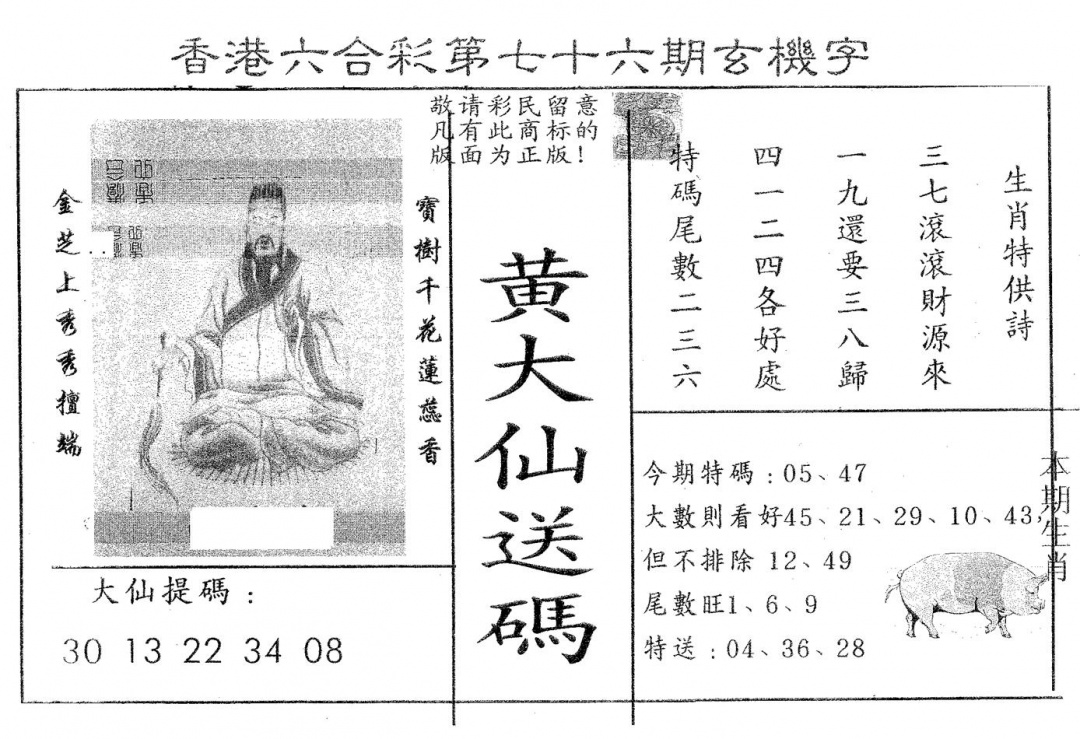 香港六合彩第七十六期玄機字
敬请彩民留意
凡有此商标的
版面为正版！
生肖特供詩
三七滾滾財源來
一九還要三八歸
四一二四各好處
特碼尾數二三六
寶樹千花蓮蕊香
金芝上秀秀擅端
黄大仙送碼
大仙提碼：
30 13 22 34 08
今期特碼：05、47
大數則看好45、21、29、10、43，
但不排除 12、49
尾數旺1、6、9
特送：04、36、28
本期生肖